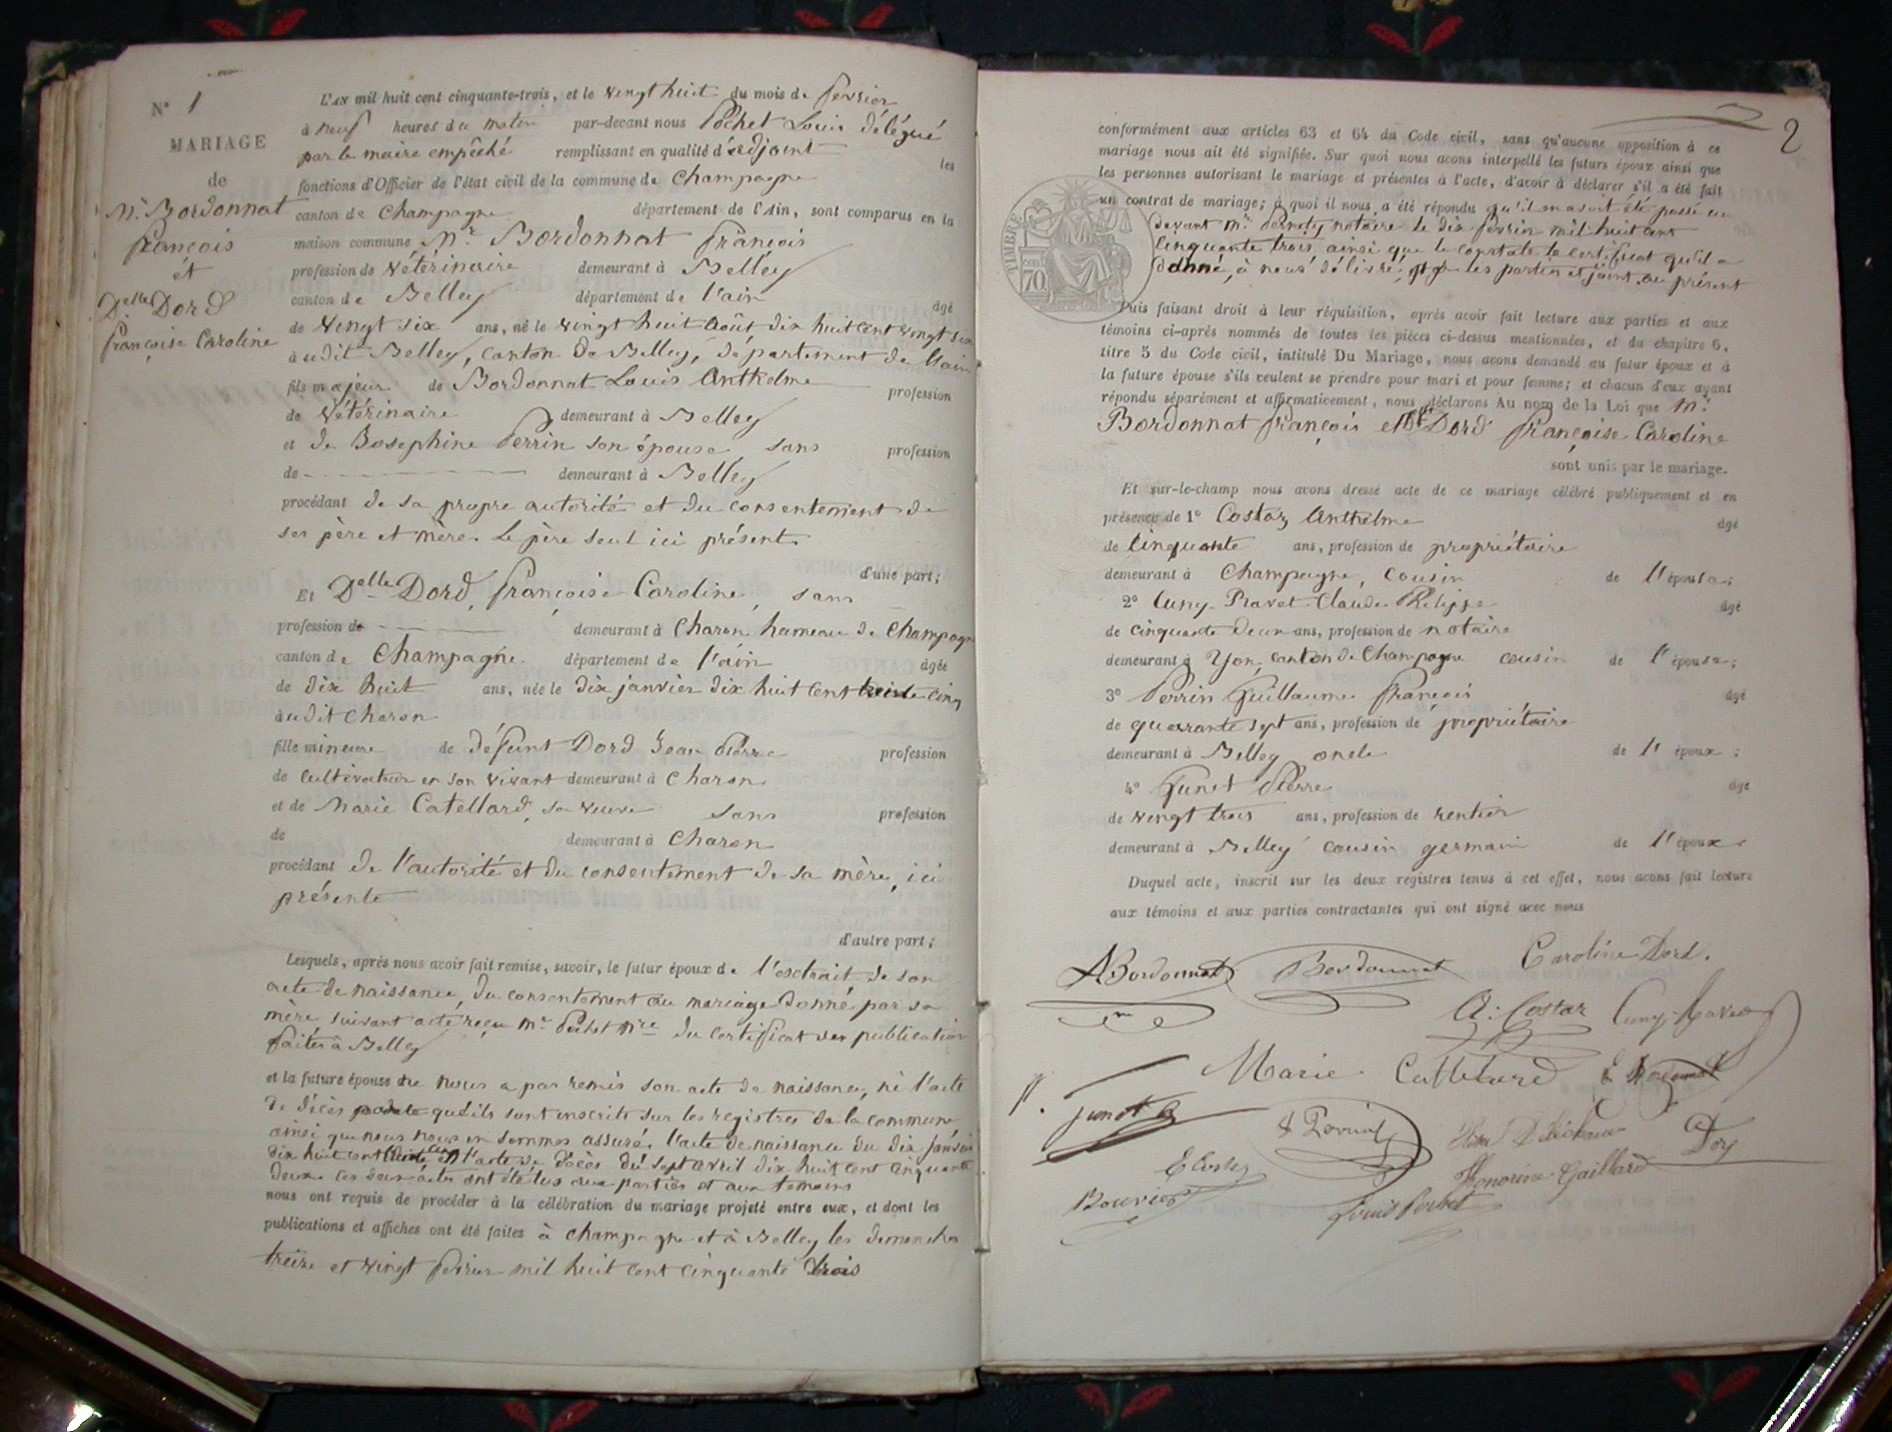 N° 1
MARIAGE
de
Mr. Bordonnat
françois
et
Delle Dord
françoise Caroline
L'an mil huit cent cinquante-trois, et le vingt huit du mois de février
à neuf heures du matin par-devant nous Pochet Louis délégué
par le maire empêché remplissant en qualité d'adjoint les
fonctions d'Officier de l'état civil de la commune de Champagne
canton de Champagne département de l'Ain, sont comparus en la
maison commune Mr. Bordonnat françois
profession de vétérinaire demeurant à Belley
canton de Belley département de l'ain âgé
de vingt six ans, né le vingt huit août dix huit cent vingt six
audit Belley, canton de Belley, département de l'ain
fils majeur de Bordonnat Louis Anthelme profession
de vétérinaire demeurant à Belley
et de Josephine Perrin son épouse sans profession
de demeurant à Belley
procédant de sa propre autorité et du consentement de
ses père et mère. Le père seul ici présent.
d'une part;
Et Delle Dord, françoise Caroline, sans
profession de demeurant à Charon hameau de Champagne
canton de Champagne département de l'ain âgée
de dix huit ans, née le dix janvier dix huit cent trente cinq
audit Charon
fille mineure de défunt Dord Jean Pierre profession
de cultivateur en son vivant demeurant à Charon
et de Marie Catellard, sa veuve sans profession
de demeurant à Charon
procédant de l'autorité et du consentement de sa mère, ici
présente
d'autre part;
Lesquels, après nous avoir fait remise, savoir, le futur époux de l'extrait de son
acte de naissance, du consentement au mariage donné par sa
mère suivant acte reçu Mr. Pochet Nre du certificat des publication
faites à Belley
et la future épouse ne nous a pas remis son acte de naissance, ni l'acte
de décès qu'ils sont inscrits sur les registres de la commune,
ainsi que nous nous en sommes assuré. l'acte de naissance du dix janvier
dix huit cent trente cinq l'acte de décès du sept avril dix huit cent cinquante
deux ces deux actes ont été lus aux parties et aux temoins
nous ont requis de procéder à la célébration du mariage projeté entre eux, et dont les
publications et affiches ont été faites à Champagne et à Belley les dimanches
treize et vingt février mil huit cent cinquante trois
2
conformément aux articles 63 et 64 du Code civil, sans qu'aucune opposition à ce
mariage nous ait été signifiée. Sur quoi nous avons interpellé les futurs époux ainsi que
les personnes autorisant le mariage et présentes à l'acte, d'avoir à déclarer s'il a été fait
un contrat de mariage; à quoi il nous a été répondu qu'il en avait été passé un
devant Mr. notaire le dix février mil huit cent
cinquante trois ainsi que le constate le certificat qu'il a
donné, à nous délivré, par les parties et joint au présent
TIMBRE
70
Puis faisant droit à leur réquisition, après avoir fait lecture aux parties et aux
témoins ci-après nommés de toutes les pièces ci-dessus mentionnées, et du chapitre 6,
titre 5 du Code civil, intitulé Du Mariage, nous avons demandé au futur époux et à
la future épouse s'ils veulent se prendre pour mari et pour femme; et chacun d'eux ayant
répondu séparément et affirmativement, nous déclarons Au nom de la Loi que Mr.
Bordonnat françois et Delle Dord françoise Caroline
sont unis par le mariage.
Et sur-le-champ nous avons dressé acte de ce mariage célébré publiquement et en
présence de 1° Costaz Anthelme âgé
de cinquante ans, profession de propriétaire
demeurant à Champagne, cousin de l'épouse;
2° Cuny-Ravet Claude Philippe âgé
de cinquante deux ans, profession de notaire
demeurant à Yon, canton de Champagne cousin de l'épouse;
3° Perrin Guillaume françois âgé
de quarante sept ans, profession de propriétaire
demeurant à Belley oncle de l'époux;
4° Junet Pierre âgé
de vingt trois ans, profession de rentier
demeurant à Belley cousin germain de l'époux.
Duquel acte, inscrit sur les deux registres tenus à cet effet, nous avons fait lecture
aux témoins et aux parties contractantes qui ont signé avec nous
ABordonnat Bordonnat Caroline Dord.
A. Costaz Cuny-Ravet
Marie Cattelard
P. Junet
Honorine Gaillard
Bouvier Louis Pochet